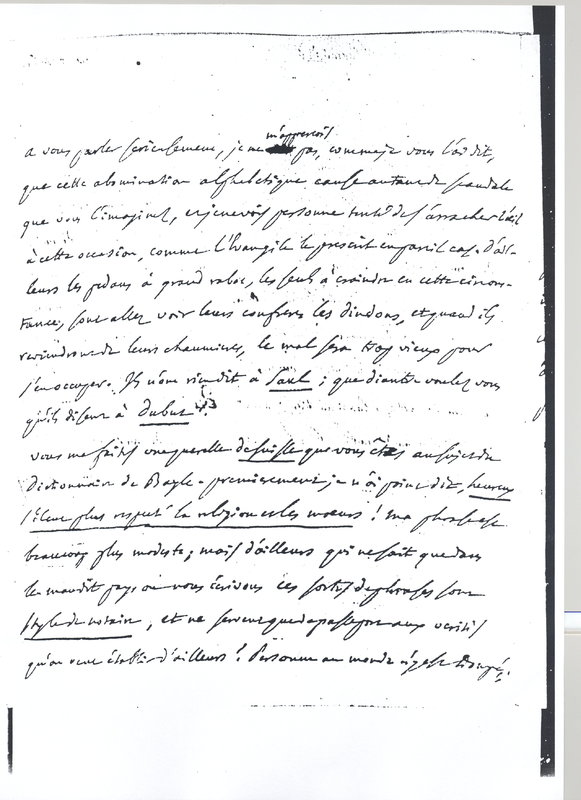 m'apperçois
a vous parler serieusement, je ne pas, comme je vous l'ai dit,
que cette abomination alphabetique cause autant de scandale
que vous l'imaginez, et je ne vois personne tenté de s'arracher l'œil
à cette occasion, comme l'Evangile le prescrit en pareil cas. D'ail-
leurs les pedans à grand rabat, les seuls à craindre en cette circons-
tance, sont allez voir leurs confreres les dindons, et quand ils
reviendront de leurs chaumieres, le mal sera trop vieux pour
s'en occuper. Ils n'ont rien dit à Saul ; que diantre voulez vous
qu'ils disent à Dubut ?
vous me faites une querelle de suisse que vous êtes au sujet du
Dictionnaire de Bayle - premierement je n'ai point dit, heureux
s'il eut plus respecté la religion et les mœurs ! ma phrase est
beaucoup plus modeste ; mais d'ailleurs qui ne sait que dans
le maudit pays où nous écrivons ces sortes de phrases sont
style de notaire, et ne servent que de passeport aux verités
qu'on veut établir d'ailleurs ! Personne au monde n'y est trompé.